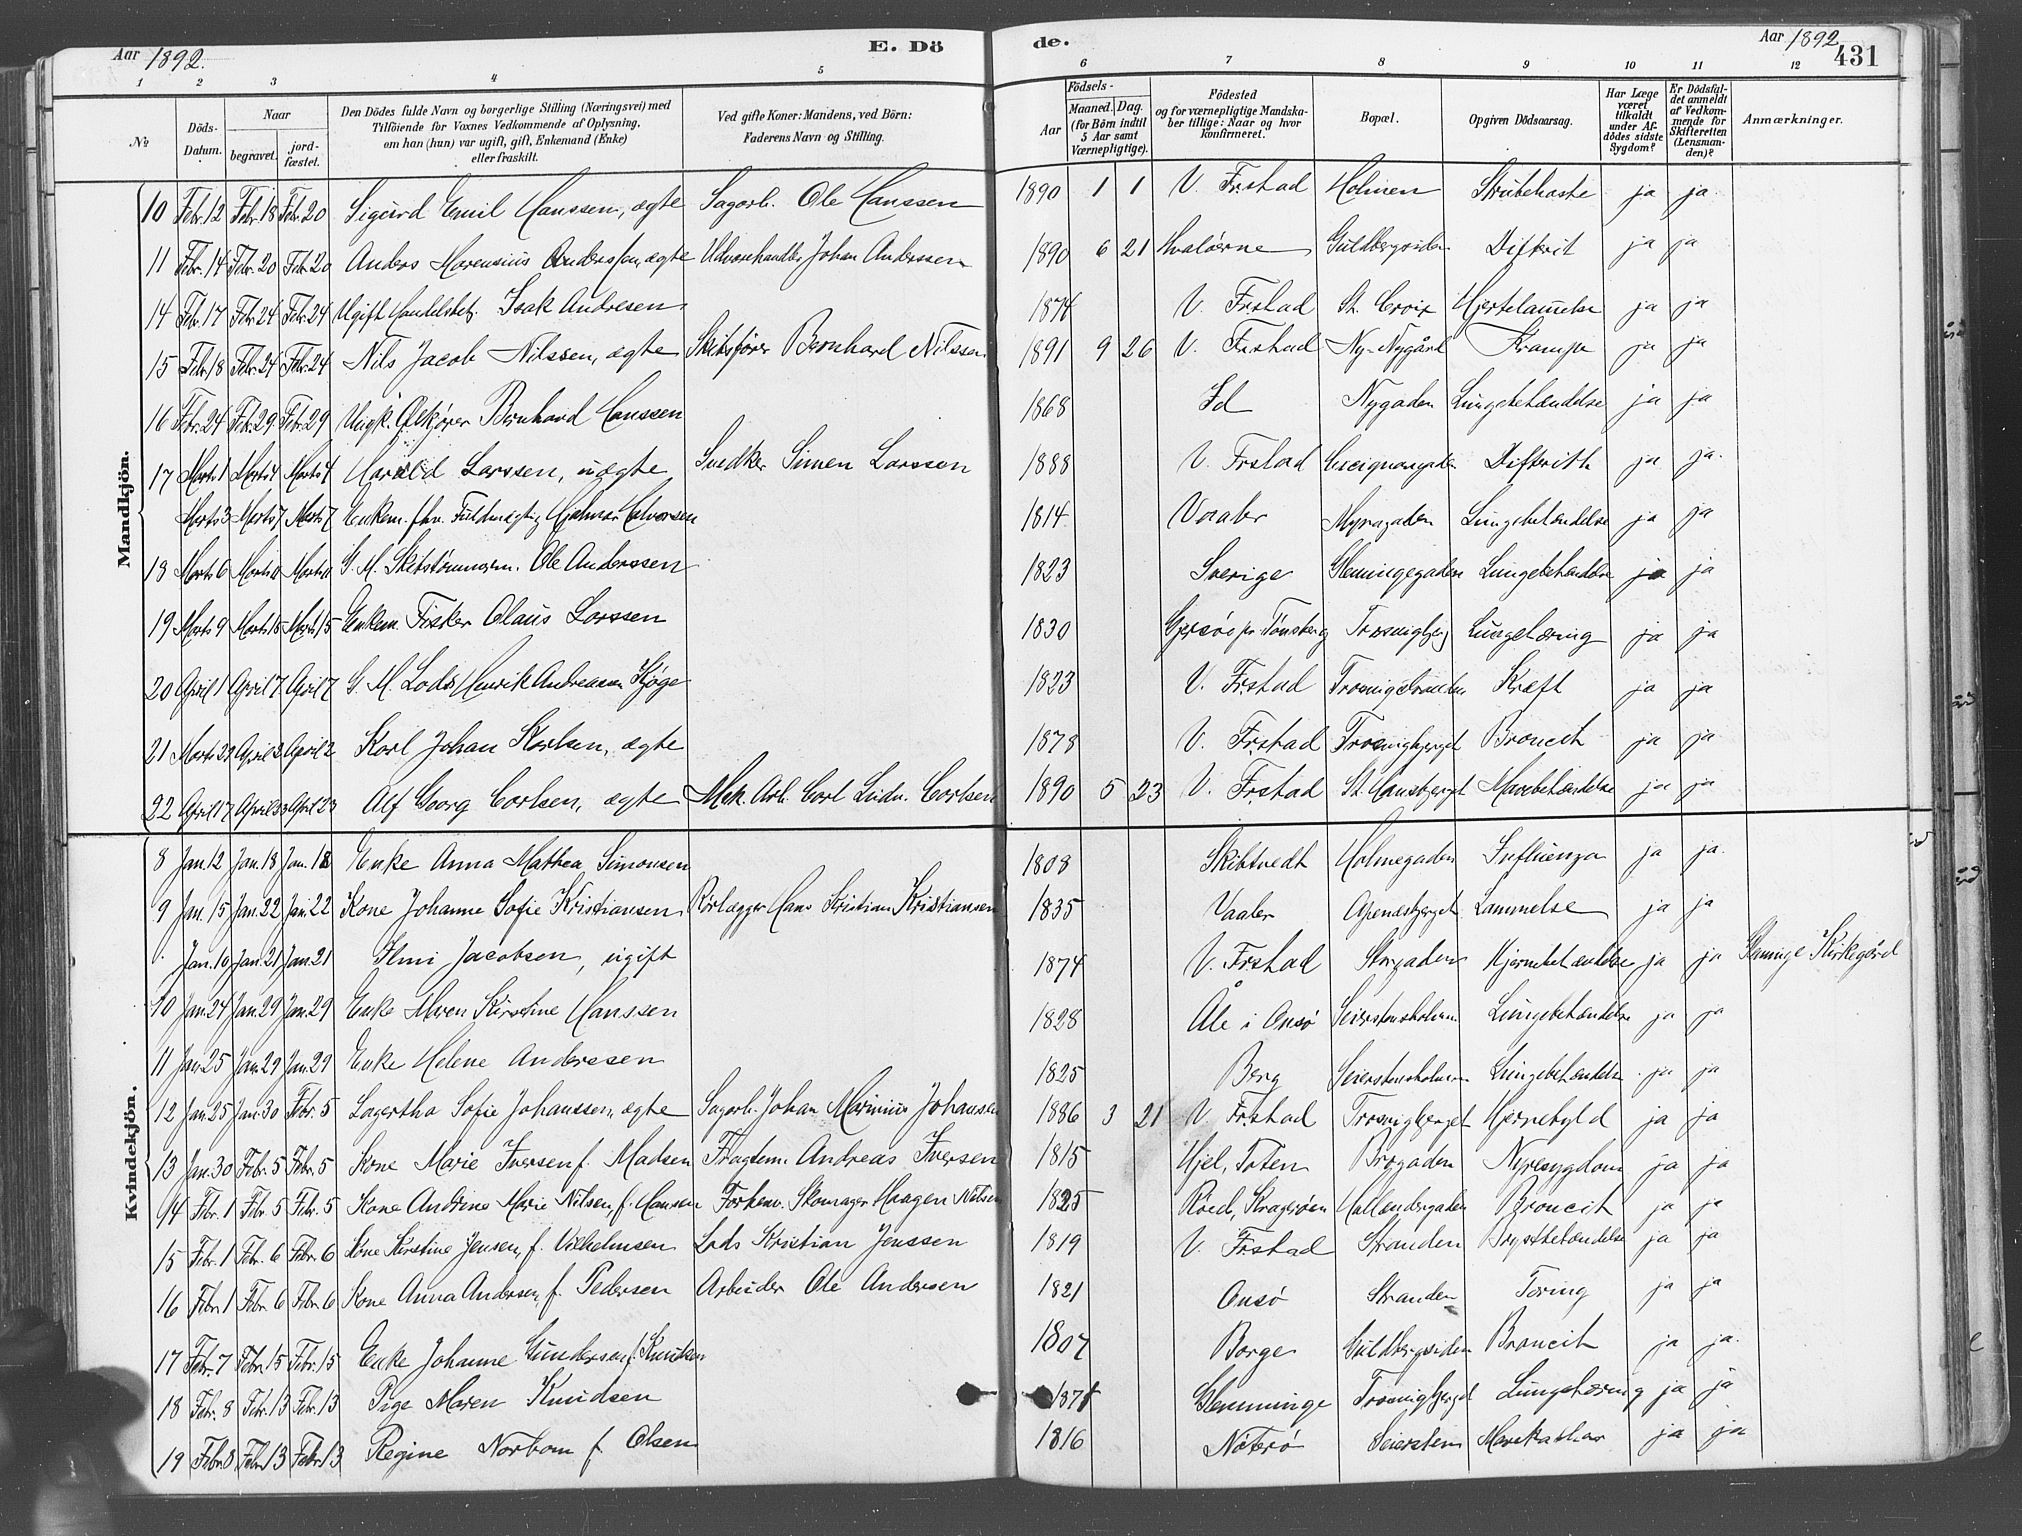 Aar 1892. E. Dö de. Aar 1892 431
1 2 3 4 5 6 7 8 9 10 11 12
№ Döds-Datum. Naar begravet. jordfæstet. Den Dödes fulde Navn og borgerlige Stilling (Næringsvei) med Tilföiende for Voxnes Vedkommende af Oplysning, om han (hun) var ugift, gift, Enkemand (Enke) eller fraskilt. Ved gifte Koner: Mandens, ved Börn: Faderens Navn og Stilling. Födsels- Aar Maaned. Dag. (for Börn indtil 5 Aar samt Værnepligtige). Födested og for værnepligtige Mandskaber tillige: Naar og hvor konfirmeret. Bopæl. Opgiven Dödsaarsag. Har Læge været tilkaldt under Afdödes sidste Sygdom? Er Dödsfaldet anmeldt af Vedkommende for Skifteretten (Lensmanden)? Anmærkninger.
Mandkjön.
10 Febr. 12 Febr. 18 Febr. 20 Sigurd Emil Hanssen, ægte Sagarb. Ole Hanssen 1890 1 1 V. Frstad Holmen Strubehoste ja ja
11 Febr. 14 Febr. 20 Febr. 20 Anders Marensius Anderssen, ægte Johan Anderssen 1890 6 21 Hvaløerne Guldbergsiden Difterit ja ja
14 Febr. 17 Febr. 24 Febr. 24 Ugift Handelsbetj. Isak Andresen 1874 V. Frstad St. Croix Hjertelammelse ja ja
15 Febr. 18 Febr. 24 Febr. 24 Nils Jacob Nilssen, ægte Skibsfører Bernhard Nilssen 1891 9 26 V. Frstad Ny-Nygård Krampe ja ja
16 Febr. 24 Febr. 29 Febr. 29 Ungk. Ølkjører Bernhard Hanssen 1868 Id Nygaden Lungebetændelse ja ja
17 Marts 1 Marts 4 Marts 4 Harald Larssen, uægte Snedker Simen Larssen 1888 V. Frstad Difterith ja ja
Marts 3 Marts 7 Marts 7 Enkem. fhv. Fuldmægtig Hjalmar Halvorsen 1814 Vaaler Myragaden Lungebetændelse ja ja
18 Marts 6 Marts 11 Marts 11 G. M. Skibstømmerm. Ole Anderssen 1823 Sverige Glemmingegaden Lungebetændelse ja ja
19 Marts 9 Marts 15 Marts 15 Enkem. Fisker Olaus Larssen 1830 pr Tønsberg Trosvigbjerg Lungetæring ja ja
20 April 1 April 7 April 7 G. M. Lods Henrik Andreassen Kjøge 1823 V. Frstad Kræft ja ja
21 Marts 29 April 2 April 2 Karl Johan Karlsen, ægte 1878 V. Frstad Trosvigbjerget Broncit ja ja
22 April 17 April 23 April 23 Alf Georg Carlsen, ægte Mek. Arb. Carl Ludv. Carlsen 1890 5 23 V. Frstad St. Hansbjerget Mavebetændelse ja ja
Kvindekjön.
8 Jan. 12 Jan. 18 Jan. 18 Enke Anna Mathea Simonsen 1808 Skibtvedt Holmegaden Influenza ja ja
9 Jan. 15 Jan. 22 Jan. 22 Kone Johanne Sofie Kristiansen Rørlægger Hans Kristian Kristiansen 1835 Vaaler Apenæsbjerget Lammelse ja ja
Jan. 10 Jan. 21 Jan. 21 Ilmi Jacobsen, ugift 1874 V. Frstad Storgaden Hjernebetændelse ja ja Glemminge Kirkegård
10 Jan. 24 Jan. 29 Jan. 29 Enke Maren Kirstine Hanssen 1828 Åle i Onsø Seierstensholmen Lungebetændelse ja ja
11 Jan. 25 Jan. 29 Jan. 29 Enke Helene Anderssen 1825 Berg Seierstensholmen Lungebetændelse ja ja
12 Jan. 25 Jan. 30 Febr. 5 Lagertha Sofie Johanssen, ægte Sagarb. Johan Marinius Johansen 1886 3 21 V. Frstad Trosvigbjerget Hjernebyld ja ja
13 Jan. 30 Febr. 5 Febr. 5 Kone Marie Iversen f. Madsen Fragtem. Andreas Iversen 1815 Hjel, Toten Brogaden Nyresygdom ja ja
14 Febr. 1 Febr. 5 Febr. 5 Kone Andrine Marie Nilsen, f. Hansen Forhenv. Skomager Haagen Nilsen 1825 Røed, Kragerøen Hollændergaden Broncit ja ja
15 Febr. 1 Febr. 6 Febr. 6 Kone Kirstine Jensen, f. Vilhelmsen Lods Kristian Jenssen 1819 V. Frstad Stranden Brystbetændelse ja ja
16 Febr. 1 Febr. 6 Febr. 6 Kone Anna Andersen, f. Pedersen Arbeider Ole Andersen 1821 Onsø Stranden Tæring ja ja
17 Febr. 7 Febr. 15 Febr. 15 Enke Johanne Gundersen f. Knudsen 1807 Borge Guldbergsiden Broncit ja ja
18 Febr. 8 Febr. 13 Febr. 13 Pige Maren Knudsen 1871 Glemminge Trosvigbjerget Lungetæring ja ja
19 Febr. 8 Febr. 13 Febr. 13 Regine Norbom f. Olsen 1816 Nøterø Seiersten Mavekathar ja ja